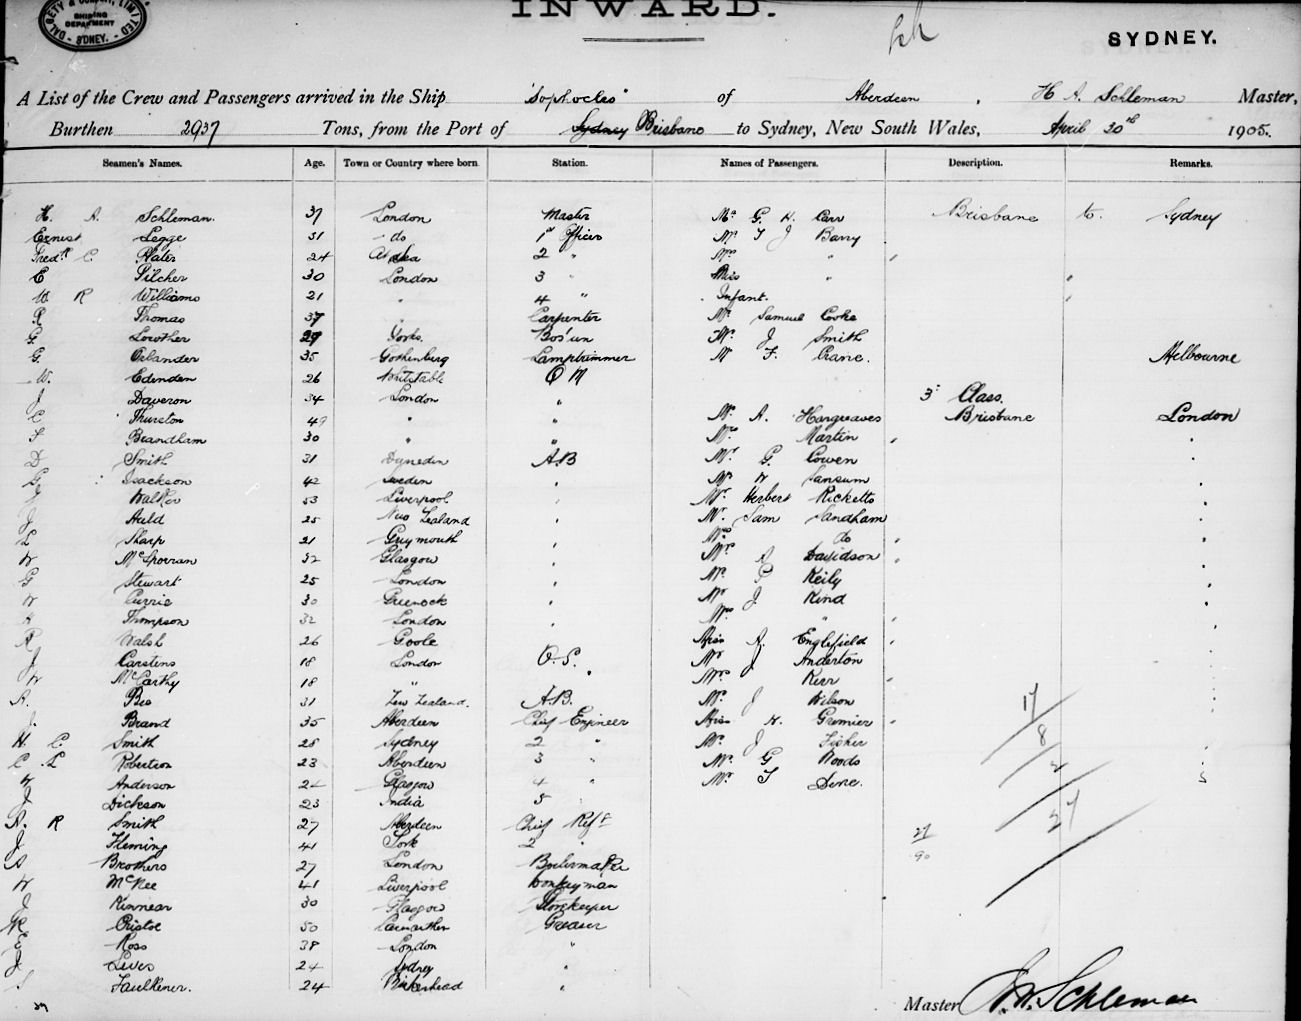 INWARD.
DALGETY & COMPANY, LIMITED
SHIPPING
DEPARTMENT
SYDNEY.
SYDNEY.
A List of the Crew and Passengers arrived in the Ship "Sophocles" of Aberdeen, H A. Schleman Master,
Burthen 2937 Tons, from the Port of Sydney Brisbane to Sydney, New South Wales, April 30th 1905.
Seamen's Names. Age. Town or Country where born Station. Names of Passengers. Description. Remarks.
H. A. Schleman. 37 London Master Mr G. H. Carr Brisbane to Sydney
Ernest Legge 31 do 1st Officer Mr T J Barry
Fredk C. Slater 24 At Sea 2 " Mrs "
C Pilcher 30 London 3 " Miss "
W R Williams 21 " 4 " Infant.
R Thomas 37 " Carpenter Mr Samuel Cooke
G. Lowther 29 Yorks. Bos'un Mr. J Smith
G. Oslander 35 Gothenburg Lamptrimmer Mr F. Crane. Melbourne
W. Edenden 26 Whitstable Q M
J Daveron 34 London " 3 Class.
C Thurston 49 " " Mr. A. Hargreaves Brisbane London
F Brandham 30 " " Mrs Martin
D Smith 31 Dunedin A.B Mr G. Cowen
G Isackson 42 Sweden Mr W Sansum
J Walker 53 Liverpool Mr. Herbert Ricketts
J Auld 25 New Zealand Mr. Sam Sandham
L Sharp 21 Greymouth Mrs do
W McSporran 32 Glasgow Mrs A Davidson
G Stewart 25 London Mr. P Keily
W Currie 30 Greenock Mr J. Kind
H Thompson 32 London Mrs "
R Walsh 26 Goole Miss A. Englefield
J Carstens 18 London O.S. Mr J Anderton
W McCarthy 18 " " Mrs Kerr
A. Bee 31 New Zealand. A.B. Mr. J Wilson
J. Brand 35 Aberdeen Chief Engineer Miss H. Gremier
H. C. Smith 28 Sydney 2 " Mr. J Fisher
C. L Robertson 23 Aberdeen 3 " Mr. G Woods
W Anderson 24 Glasgow 4 " Mr T Dene.
J Dickson 23 India 5
A. R Smith 27 Aberdeen Chief Refr
J Fleming 41 York 2 "
A Brothers 27 London Boilermaker
W McKee 41 Liverpool Donkeyman
J Kinnear 30 Glasgow Storekeeper
W Bristoe 50 Carmarthen Greaser
E Ross 38 London "
J Lives 24 Sydney "
Faulkener. 24 Birkenhead "
17
8
2
27
27
90
39
Master H. A. Schleman